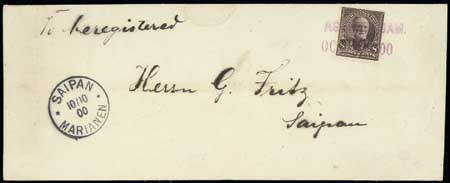 To be registered
OC 00
SAIPAN
10/10
00
MARIANEN
Herrn G. Fritz
Saipan